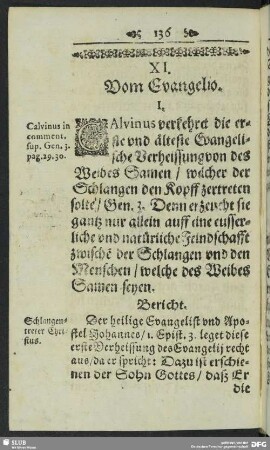 136
XI.
Vom Evangelio.
I.
Calvinus in
comment.
sup. Gen. 3.
pag. 29. 30.
CAlvinus verkehret die er-
ste vnd älteste Evangeli-
sche Verheissung von des
Weibes Samen / wücher der
Schlangen den Kopff zertreten
solte / Gen. 3. Denn er zeucht sie
gantz nur allein auff eine eusser-
liche vnd natürliche Feindschafft
zwischē der Schlangen vnd den
Menschen / welche des Weibes
Samen seyen.
Bericht.
Schlangen-
treter Chri-
stus.
Der heilige Evangelist vnd Apo-
stel Johannes / 1. Epist. 3. leget diese
erste Verheissung des Evangelij recht
aus / da er spricht: Dazu ist erschie-
nen der Sohn Gottes / daß Er
die
SLUB
DFG